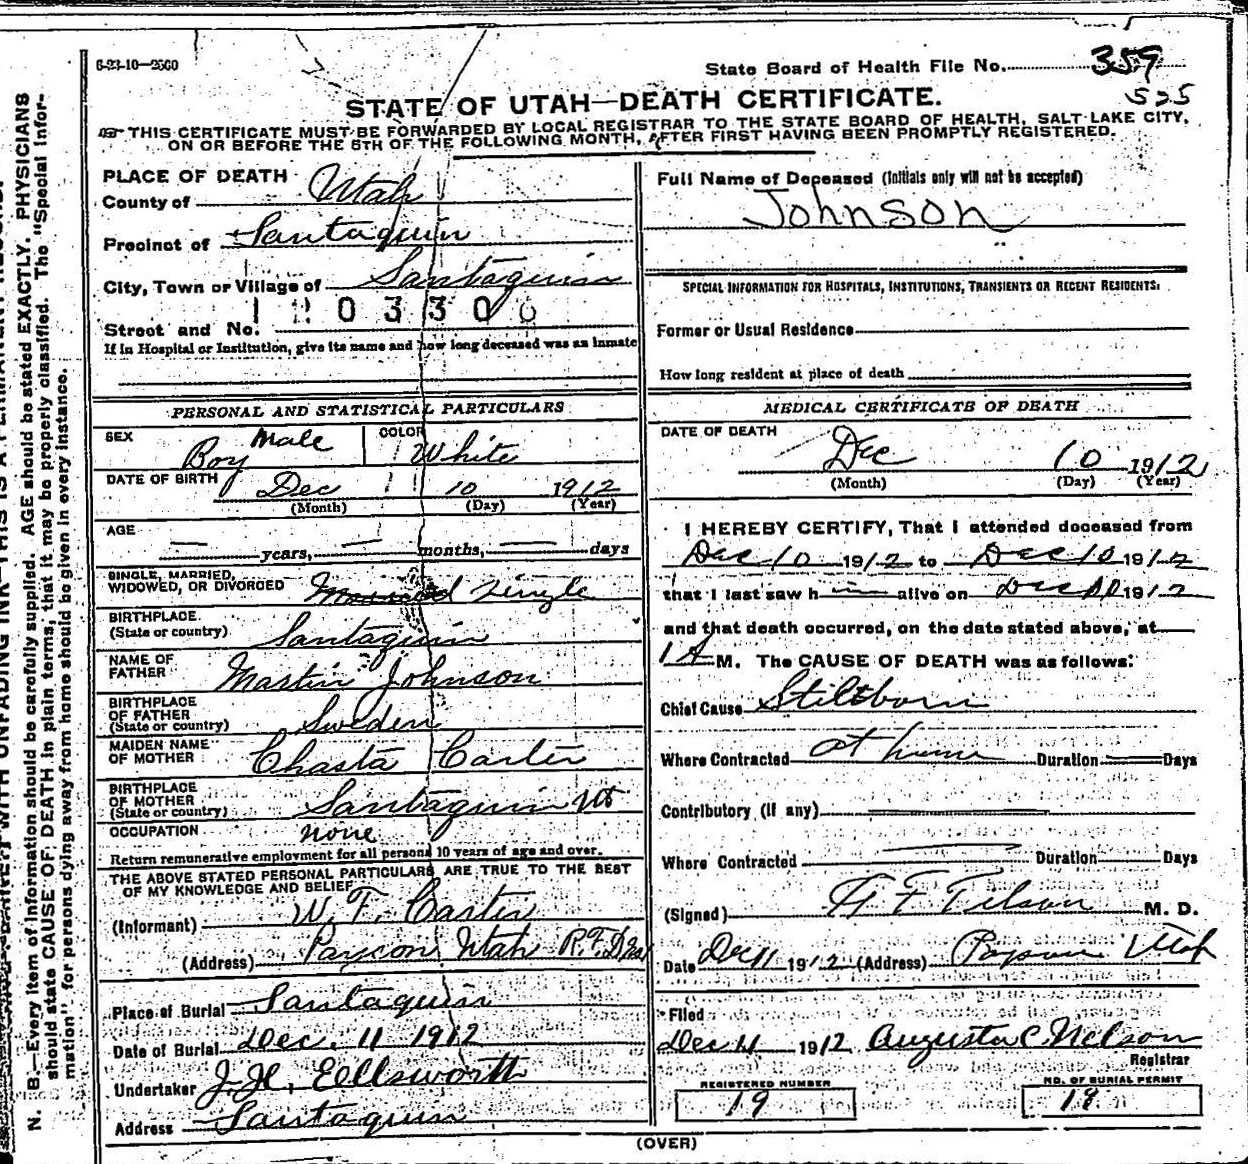 6-23-10—2560
State Board of Health File No. 359
525
STATE OF UTAH—DEATH CERTIFICATE.
THIS CERTIFICATE MUST BE FORWARDED BY LOCAL REGISTRAR TO THE STATE BOARD OF HEALTH, SALT LAKE CITY,
ON OR BEFORE THE 5TH OF THE FOLLOWING MONTH, AFTER FIRST HAVING BEEN PROMPTLY REGISTERED.
PLACE OF DEATH
County of Utah
Precinct of Santaquin
City, Town or Village of Santaquin
Street and No.
If in Hospital or Institution, give its name and how long deceased was an inmate
PERSONAL AND STATISTICAL PARTICULARS
SEX Boy Male COLOR White
DATE OF BIRTH Dec 10 1912
(Month) (Day) (Year)
AGE
— years, — months, — days
SINGLE, MARRIED,
WIDOWED, OR DIVORCED Married Single
BIRTHPLACE
(State or country) Santaquin
NAME OF
FATHER Martin Johnson
BIRTHPLACE
OF FATHER
(State or country) Sweden
MAIDEN NAME
OF MOTHER Chasta Carter
BIRTHPLACE
OF MOTHER
(State or country) Santaquin Ut
OCCUPATION none
Return remunerative employment for all persons 10 years of age and over.
THE ABOVE STATED PERSONAL PARTICULARS ARE TRUE TO THE BEST
OF MY KNOWLEDGE AND BELIEF
(Informant) W. F. Carter
(Address) Payson Utah R.F.D.
Place of Burial Santaquin
Date of Burial Dec. 11 1912
Undertaker J. H. Eellsworth
Address Santaquin
Full Name of Deceased (Initials only will not be accepted)
Johnson
SPECIAL INFORMATION FOR HOSPITALS, INSTITUTIONS, TRANSIENTS OR RECENT RESIDENTS.
Former or Usual Residence
How long resident at place of death
MEDICAL CERTIFICATE OF DEATH
DATE OF DEATH
Dec 10 1912
(Month) (Day) (Year)
I HEREBY CERTIFY, That I attended deceased from
Dec 10 1912 to Dec 10 1912
that I last saw h— alive on Dec 1912
and that death occurred, on the date stated above, at
1 A M. The CAUSE OF DEATH was as follows:
Chief Cause Stillborn
Where Contracted at home Duration — Days
Contributory (if any)
Where Contracted Duration Days
(Signed) M. D.
Date Dec 11 1912 (Address) Payson Utah
Filed
Dec 11 1912 Augusta C. Nelson
Registrar
REGISTERED NUMBER
19
NO. OF BURIAL PERMIT
19
(OVER)
N. B.—Every item of information should be carefully supplied. AGE should be stated EXACTLY. PHYSICIANS
should state CAUSE OF DEATH in plain terms, that it may be properly classified. The "Special Infor-
mation" for persons dying away from home should be given in every instance.